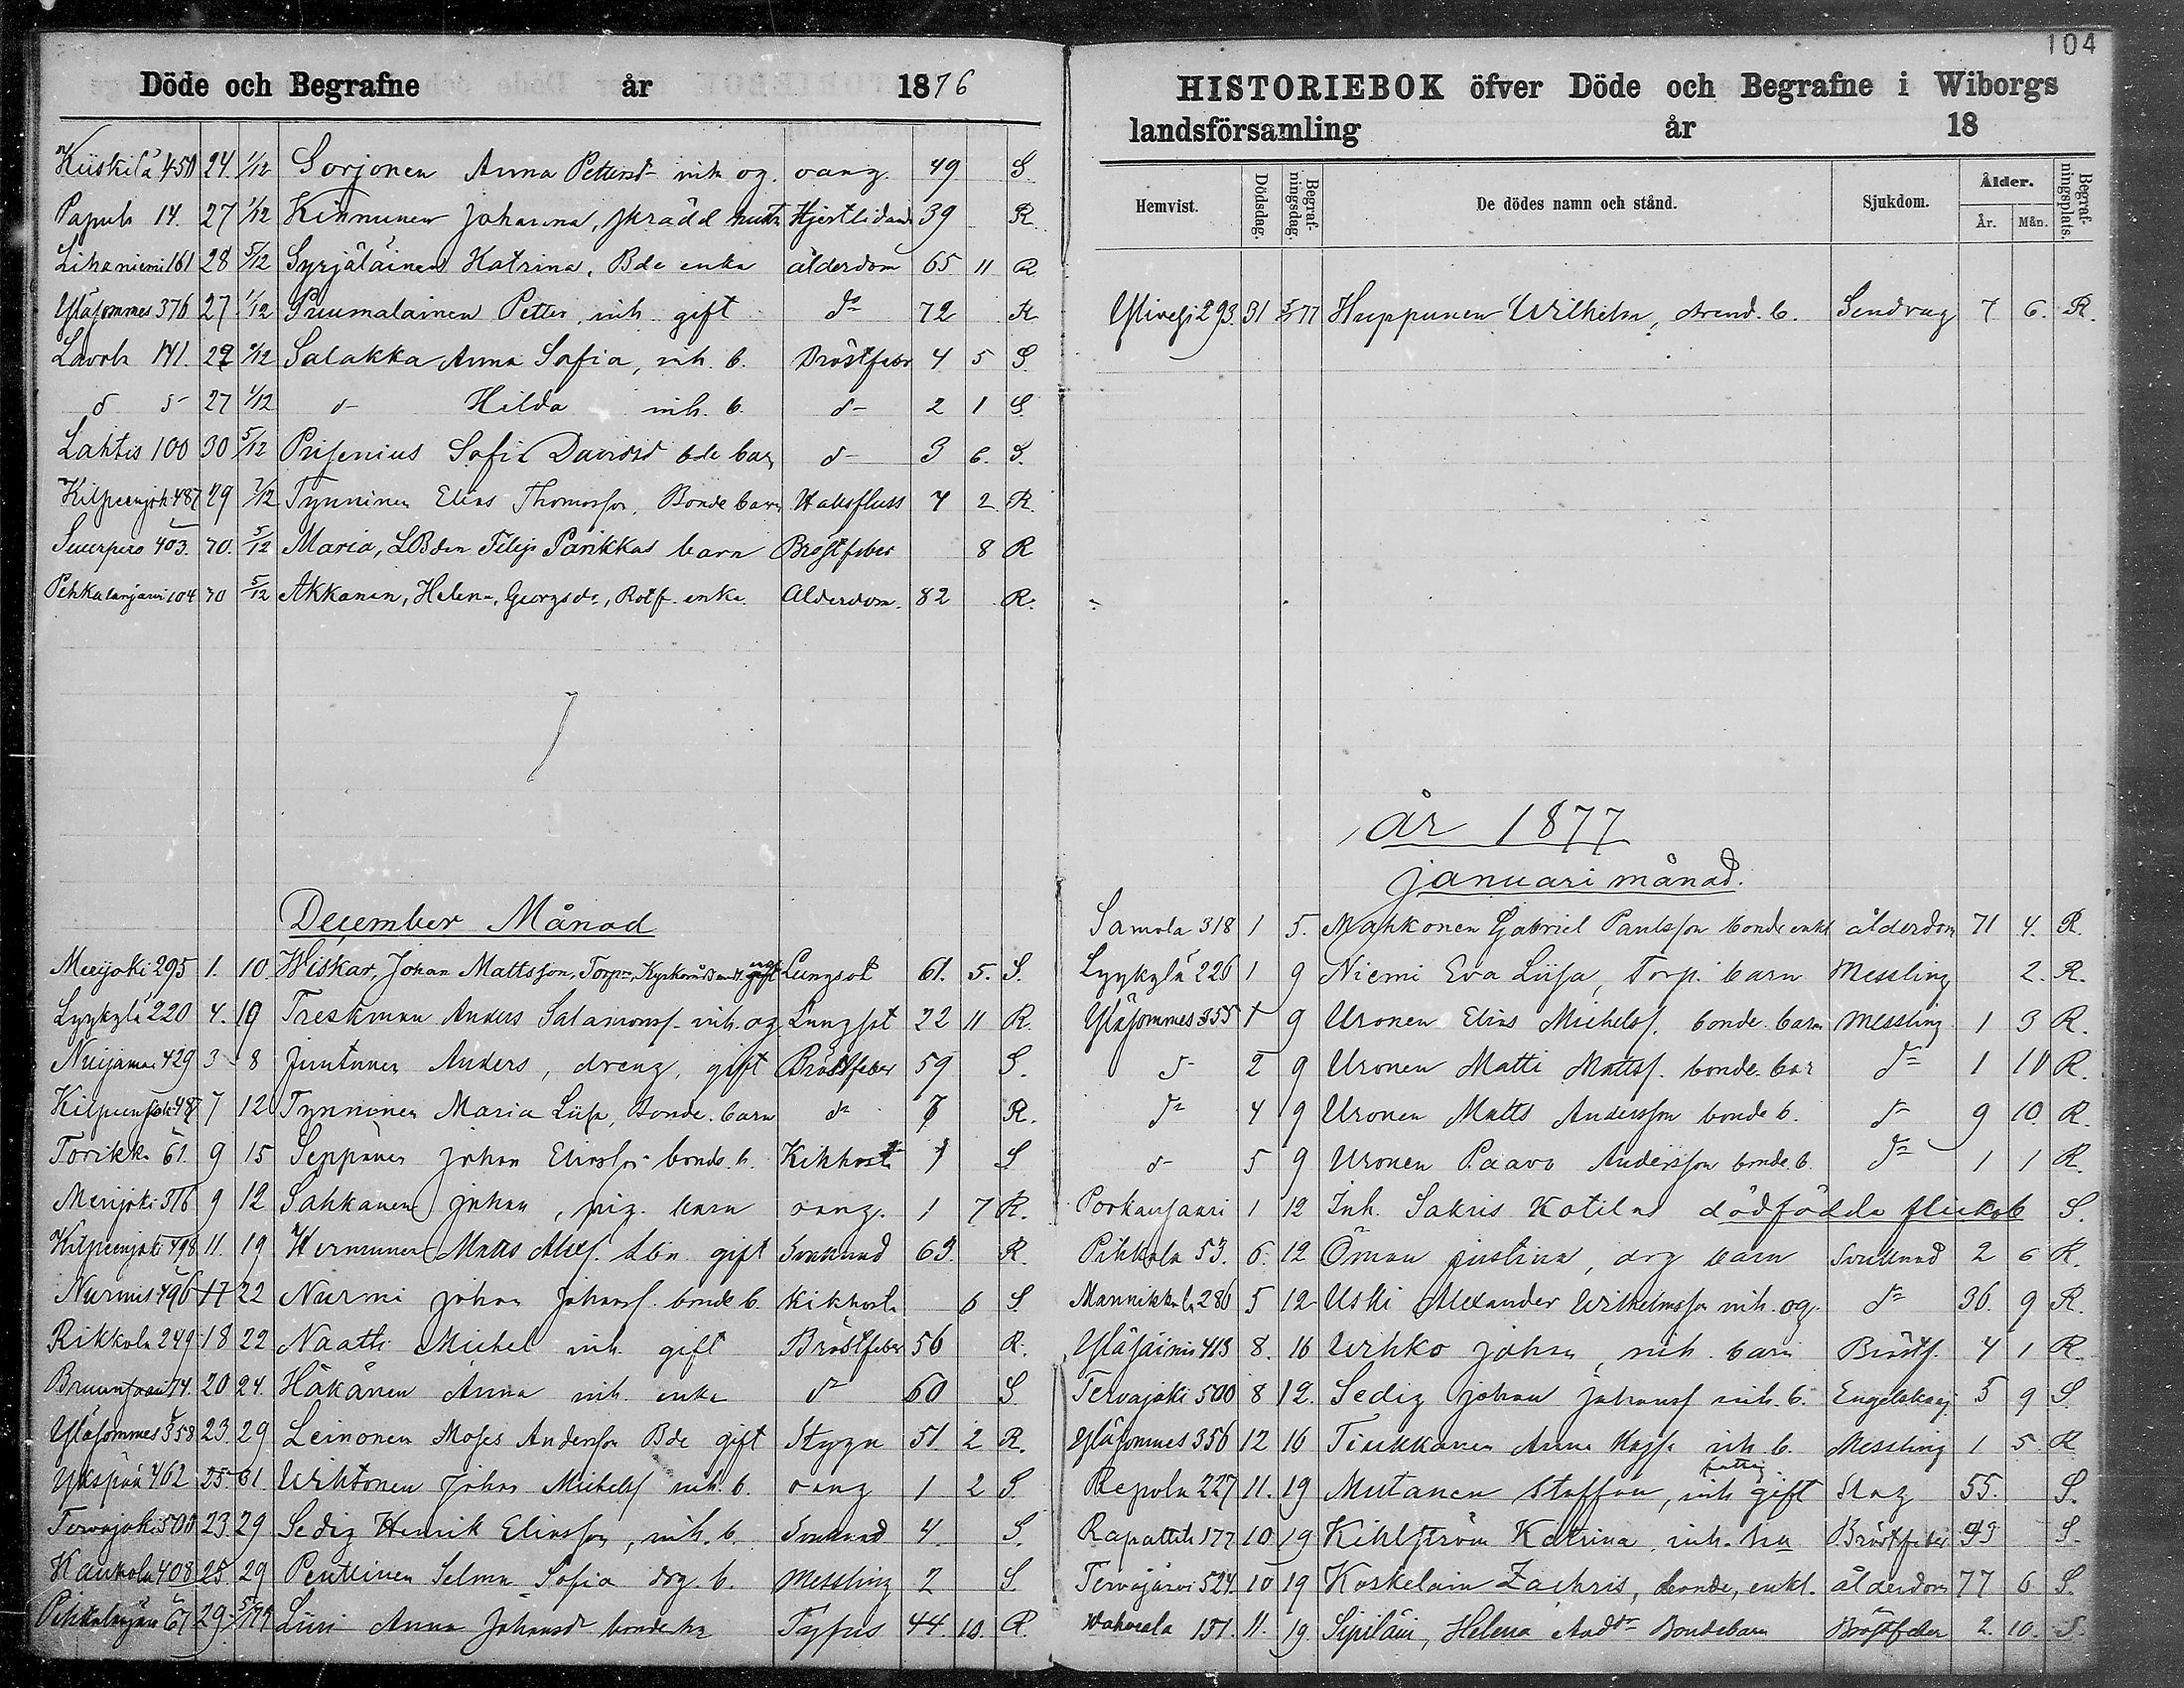 Döde och Begrafne år 1876
Kiiskilä 450 24. 1/12 Sorjonen Anna Petersd inh og. oang. 49 S.
Papula 14. 27 1/12 Kinnunen Johanna, skrädd hustr Hjertlidande 39 R.
Lihaniemi 161 28 5/12 Syrjäläinen Katrina, Bde enka ålderdom 65 11 R
Yläsommes 376 27 1/12 Puumalainen Petter, inh. gift do 72 R
Lavola 141. 29 5/12 Salakka Anna Sofia, inh. b. Bröstfeber 4 5 S.
d 27 1/12 d Hilda inh. b. d 2 1 S.
Lahtis 100 30 5/12 Prisenius Sofia Davidsd bde barn d 3 6. S.
Kilpeenjoki 487 29 7/12 Tynninen Elias Thomasson, Bonde barn Halsfluss 7 2 R.
Suurpero 403. 30. 5/12 Maria, LBden Filip Parikkas barn Bröstfeber 8 R
Pihkalanjärvi 104 30 5/12 Akkanen, Helena, Georgsdr, Rotf. enka. Ålderdom. 82 R.
December Månad
Meijoki 295 1. 10. Wiskar, Johan Mattsson, Torp., Kyrkoråd gift Lungsot 61. 5. S.
Lyykylä 220 4. 10 Treskman Anders Salamonsf. inh. og. Lungsot 22 11 R.
Nuijamaa 429 3 8 Juntunen Anders, dreng, gift Bröstfeber 59 S.
Kilpeenjoki 487 7 12 Tynninen Maria Liisa, Bonde. barn d 7 R.
Torikka 61. 9 15 Seppänen Johan Eliasson bonde. b. Kikhosta 1 S
Merijoki 316 9 12 Sahkanen Johan, pig. barn oang. 1 7 R.
Kilpeenjoki 498 11. 19 Hernunen Matts Alexf. Lbn gift Svullnad 63. R.
Nurmis 496 17 22 Nurmi Johan Johansf. bonde b. Kikhosta 6 S.
Rikkola 249 18 22 Naatti Michel inh. gift Bröstfeber 56 R.
74. 20 24. Häkänen Anna inh. enka d 60 S.
Yläsommes 358 23. 29 Leinonen Moses Andersson Bde gift Stygn 51. 2 R.
Yksipää 462 25 31. Wihtonen Johan Michelsf inh. b. oang 1 2 S.
Tervajoki 500 23 29 Sedig Henrik Eliasson, inh. b. Svullnad 4. S.
Kaukola 408 25. 29 Penttinen Selma Sofia drg. b. Messling 2 S.
Pihkalanjärvi 61 29. 5/1 77 Liiri Anna Johansd bonde ha Tyfus 44. 10. R.
104
HISTORIEBOK öfver Döde och Begrafne i Wiborgs
landsförsamling år 18
Hemvist. Dödsdag. Begrafningsdag. De dödes namn och stånd. Sjukdom. Ålder. År. Mån. Begrafningsplats.
Ylivesi 293. 31 5/1 77 Huppunen Wilhelm, Arend. b. Sendrag 7 6. R.
år 1877
Januari månad.
Samola 318 1 5. Mahkonen Gabriel Paulsson bonde enkl ålderdom 71 4. R.
Lyykylä 226 1 9 Niemi Eva Liisa, Torp. barn Messling 2. R.
Yläsommes 355 1 9 Uronen Elias Michelsf. bonde. barn Messling 1 3 R.
d 2 9 Uronen Matti Mattsf. bonde. bar do 1 10 R.
do 4 9 Uronen Matts Andersson bonde b. d 9 10. R.
d 5 9 Uronen Paavo Andersson bonde. b. do 1 1 R.
Porkansaari 1 12 Inh. Sakris Kotilas dödfödda flickob S.
Pihkola 53. 6. 12 Öman Justina, drg barn Svullnad 2 6 R.
Mannikkala 280 5 12 Uski Alexander Wilhelmsson inh. og. do 36. 9 R.
Yläsäinis 413 8. 16 Wihko Johan, inh. barn Bröstf. 4 1 R.
Tervajoki 500 8 12. Sedig Johan Johansf inh. b. Engelska sj. 5 9 S.
Yläsommes 356 12 16 Tiukkanen Anna Kaysa inh. b. Messling 1 5. R
Repola 227 11. 19 Mutanen Staffan, inh fattig gift Slag 55. S.
Rapattila 177 10 19 Kihlström Katrina, inh. ha Bröstfeber 43 S.
Tervajärvi 524. 10 19 Koskelain Zachris, bonde, enkl. ålderdom 77 6 S.
Wahvala 151. 11. 19. Sipiläin, Helena Andd Bondebarn Bröstfeber 2. 10. S.